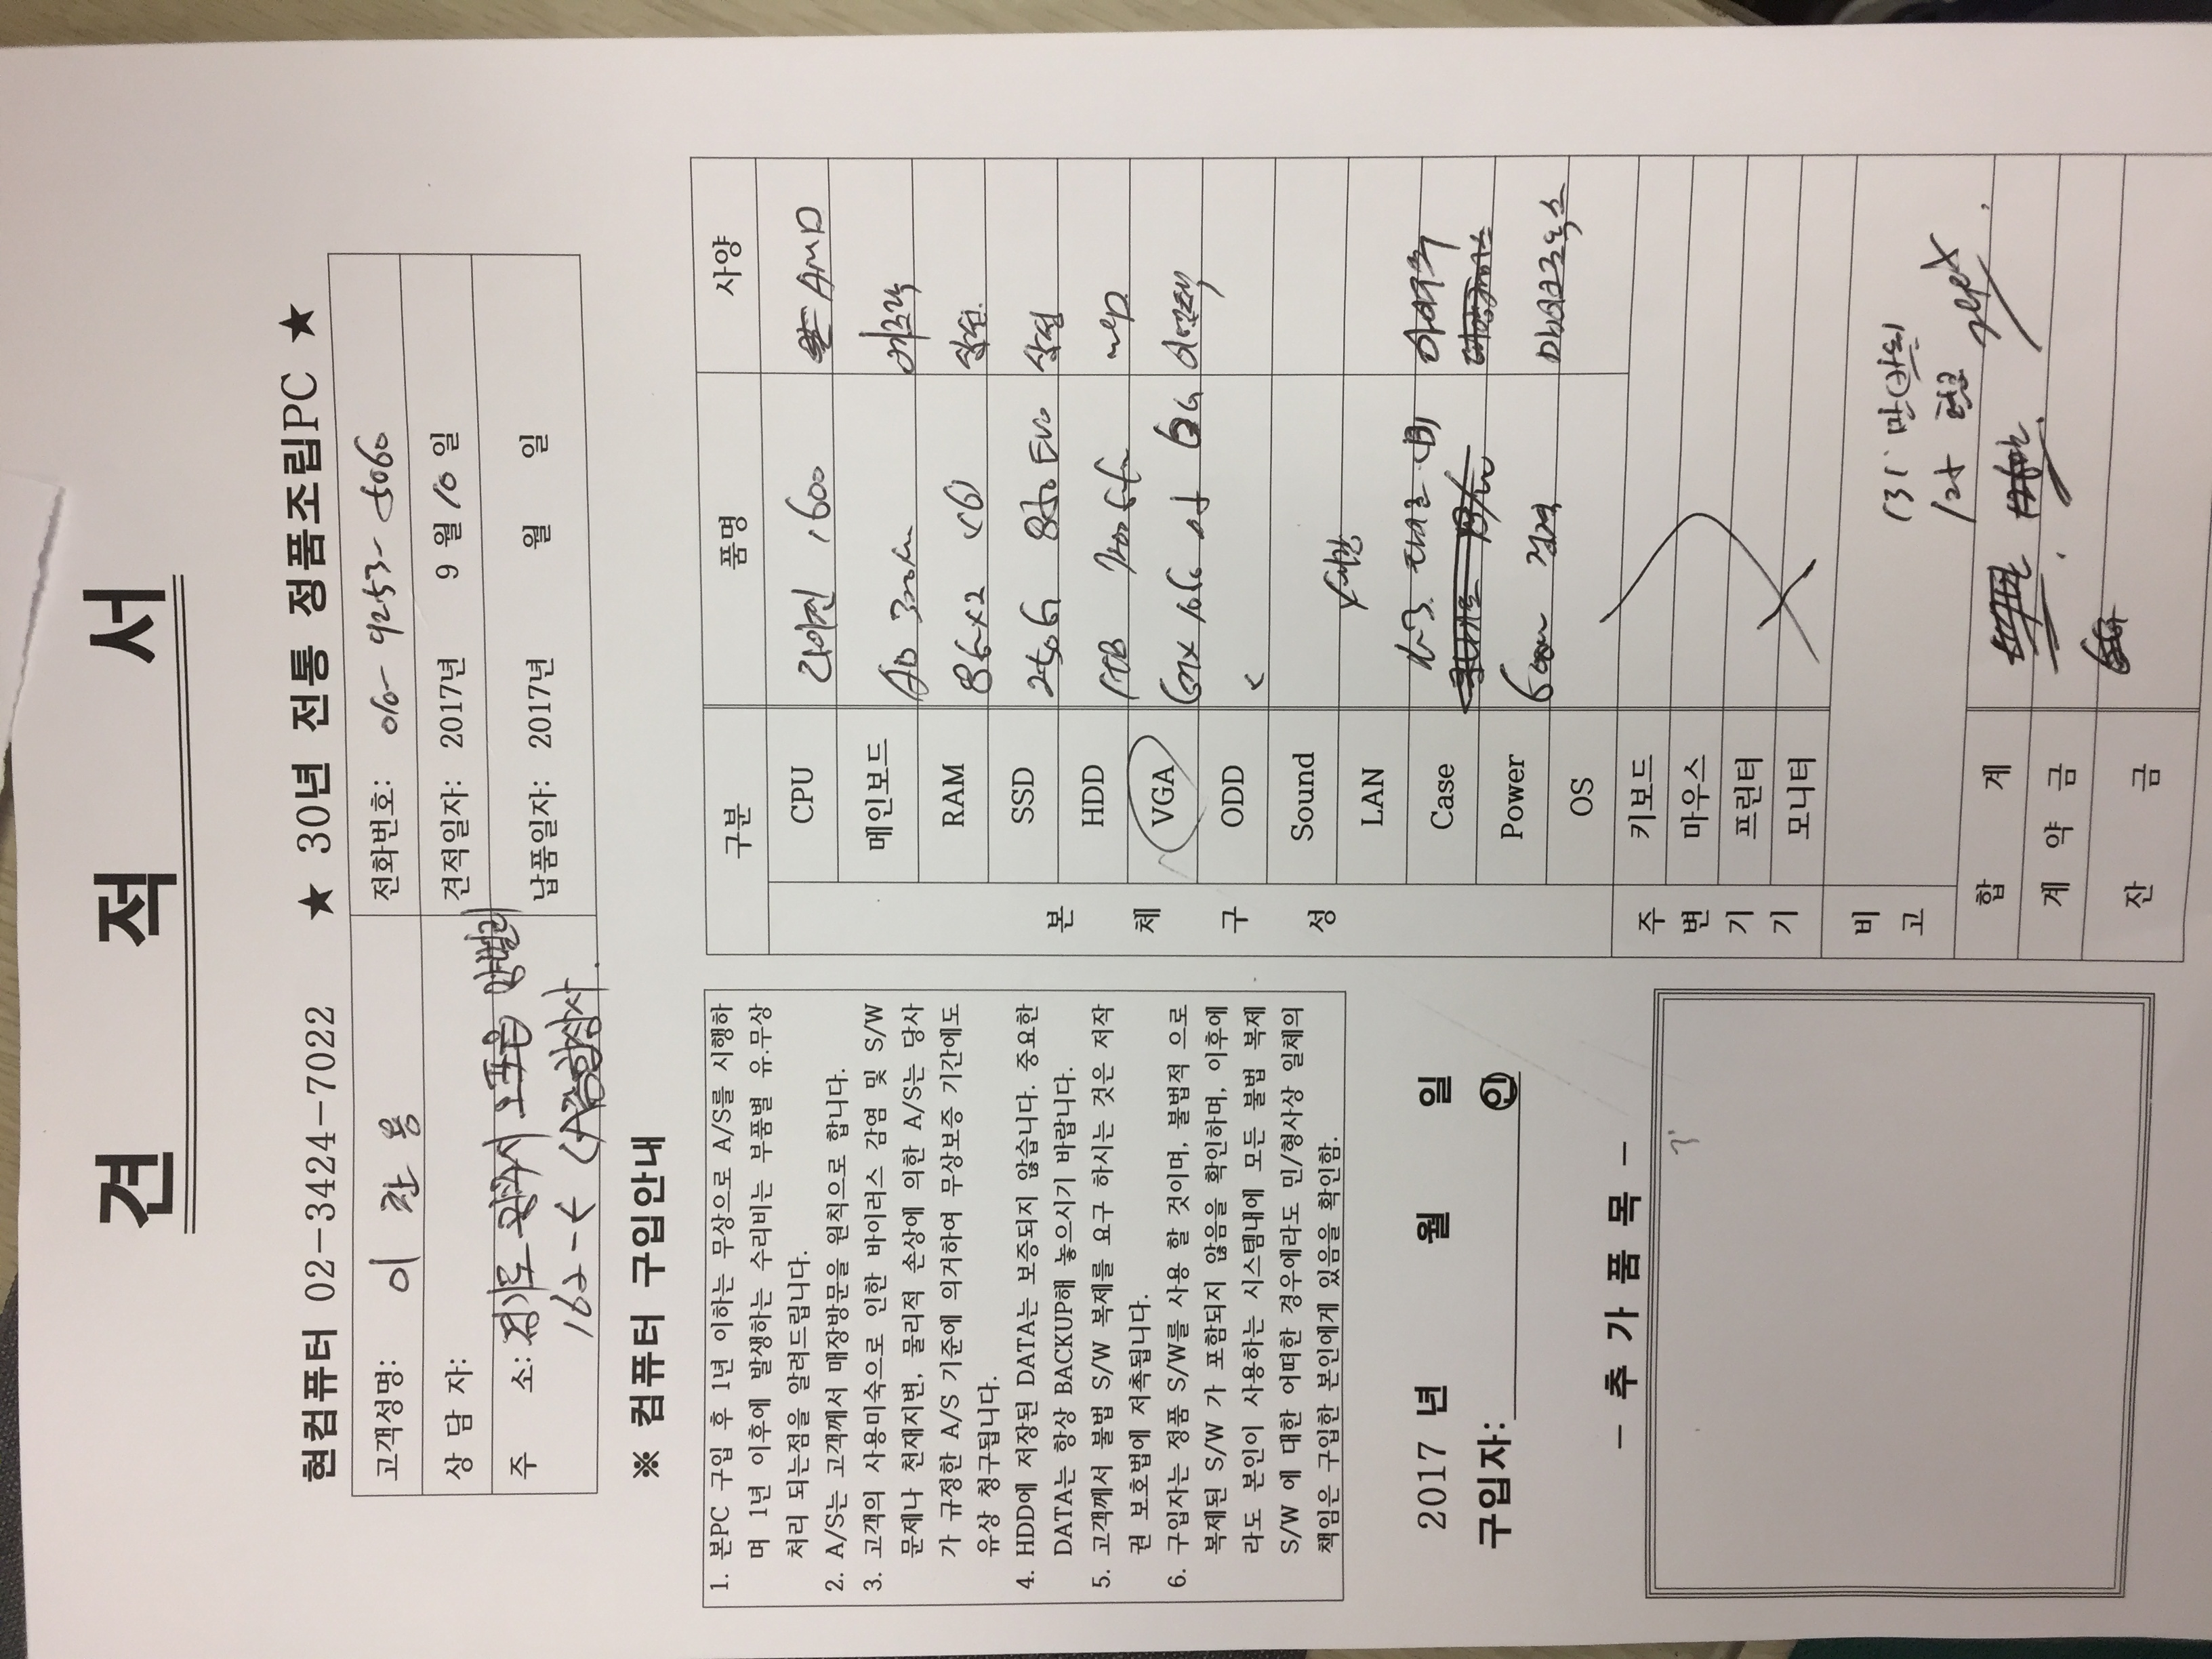 견 적 서
현컴퓨터 02-3424-7022 ★ 30년 전통 정품조립PC ★
고객성명: 이 찬 용
전화번호: 010-9253-5060
상 담 자:
견적일자: 2017년 9 월 10 일
주 소: 경기도
162-
납품일자: 2017년 월 일
※ 컴퓨터 구입안내
1. 본PC 구입 후 1년 이하는 무상으로 A/S를 시행하
며 1년 이후에 발생하는 수리비는 부품별 유.무상
처리 되는점을 알려드립니다.
2. A/S는 고객께서 매장방문을 원칙으로 합니다.
3. 고객의 사용미숙으로 인한 바이러스 감염 및 S/W
문제나 천재지변, 물리적 손상에 의한 A/S는 당사
가 규정한 A/S 기준에 의거하여 무상보증 기간에도
유상 청구됩니다.
4. HDD에 저장된 DATA는 보증되지 않습니다. 중요한
DATA는 항상 BACKUP해 놓으시기 바랍니다.
5. 고객께서 불법 S/W 복제를 요구 하시는 것은 저작
권 보호법에 저촉됩니다.
6. 구입자는 정품 S/W를 사용 할 것이며, 불법적 으로
복제된 S/W 가 포함되지 않음을 확인하며, 이후에
라도 본인이 사용하는 시스템내에 모든 불법 복제
S/W 에 대한 어떠한 경우에라도 민/형사상 일체의
책임은 구입한 본인에게 있음을 확인함.
2017 년 월 일
구입자: 인
- 추 가 품 목 -
구분 품명 사양
본 체 구 성
CPU 라이젠 1600 AMD
메인보드 AB 350M 애즈락
RAM 8G×2 삼성
SSD 250G 850 EVO 삼성
HDD 1TB WD
VGA GTX 1060 6G 이엠텍
ODD
Sound
LAN
Case
Power 600W 정격 마이크로닉스
OS
주 변 기 기
키보드
마우스
프린터
모니터
비 고
합 계
계 약 금
잔 금